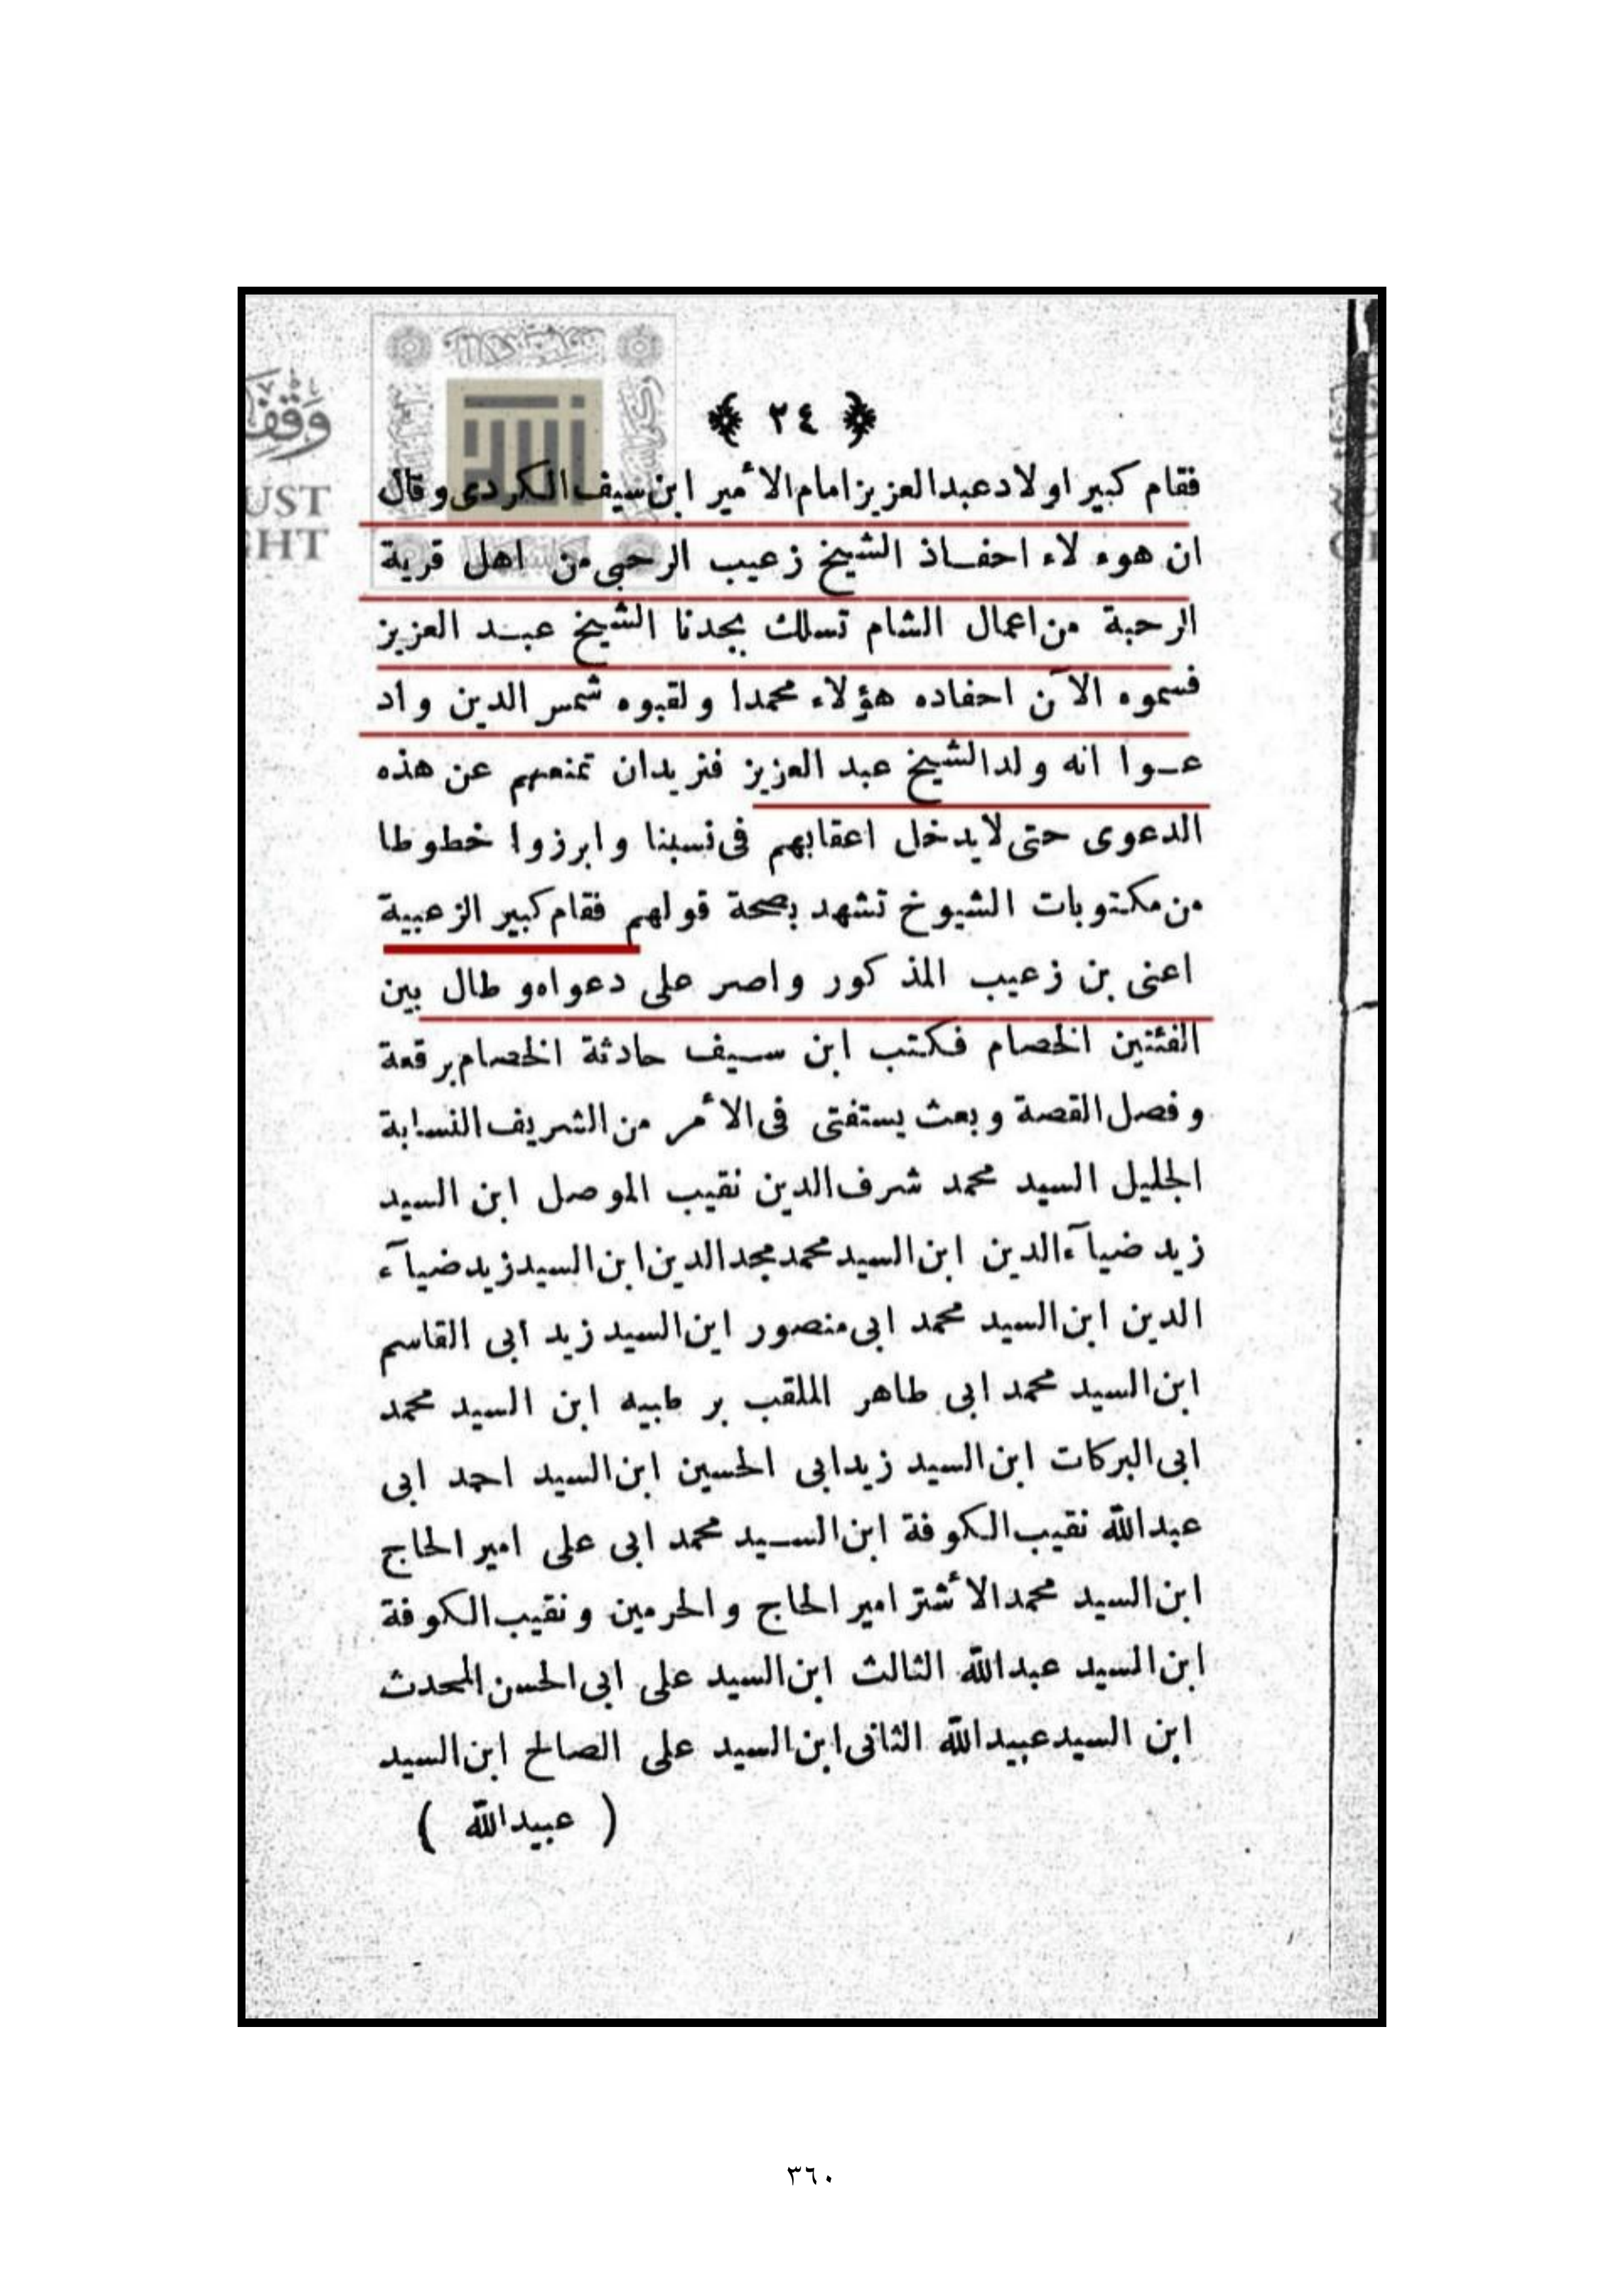 وقف
UST
GHT
﴿ ٢٤ ﴾
فقام كبير اولاد عبدالعزيز امام الأمير ابن سيف الكردى وقال
ان هوء لاء احفـاذ الشيخ زعيب الرحبى من اهل قرية
الرحبة من اعمال الشام تسلك بجدنا الشيخ عبـد العزيز
فسموه الآن احفاده هؤلاء محمدا ولقبوه شمس الدين واد
عـوا انه ولد الشيخ عبد العزيز فنريدان تمنعهم عن هذه
الدعوى حتى لايدخل اعقابهم فى نسبنا وابرزوا خطوطا
من مكتوبات الشيوخ تشهد بصحة قولهم فقام كبير الزعبية
اعنى بن زعيب المذكور واصر على دعواه و طال بين
الفئتين الخصام فكتب ابن سيف حادثة الخصام برقعة
وفصل القصة وبعث يستفتى فى الأمر من الشريف النسابة
الجليل السيد محمد شرف الدين نقيب الموصل ابن السيد
زيد ضيآء الدين ابن السيد محمد مجد الدين ابن السيد زيد ضيآء
الدين ابن السيد محمد ابى منصور اين السيد زيد ابى القاسم
ابن السيد محمد ابى طاهر الملقب بر طبيه ابن السيد محمد
ابى البركات ابن السيد زيد ابى الحسين ابن السيد احمد ابى
عبدالله نقيب الكوفة ابن السـيد محمد ابى على امير الحاج
ابن السيد محمد الأشتر امير الحاج والحرمين ونقيب الكوفة
ابن السيد عبدالله الثالث ابن السيد على ابى الحسن المحدث
ابن السيد عبيدالله الثانى ابن السيد على الصالح ابن السيد
( عبيدالله )
٣٦٠